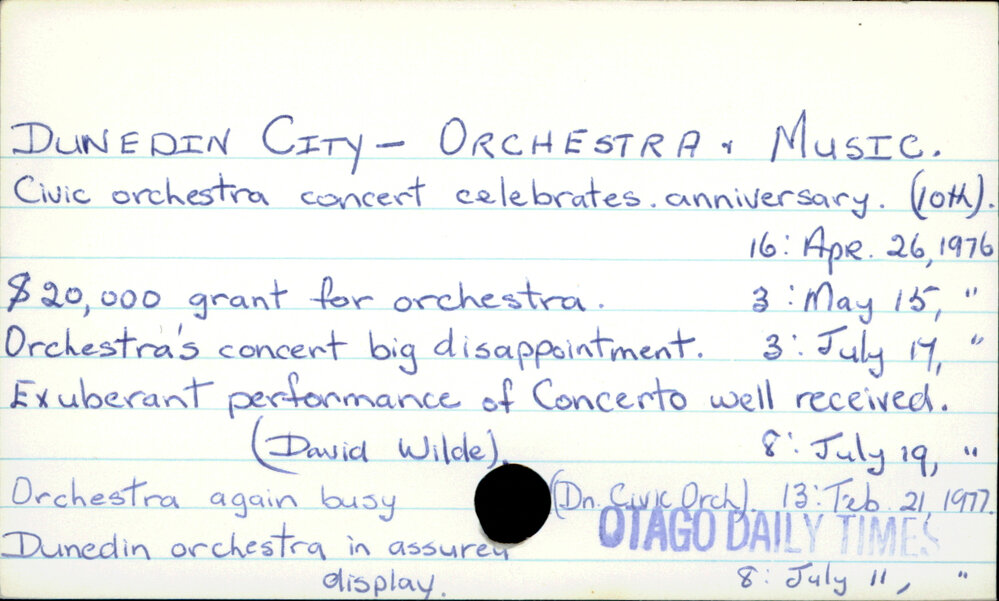 DUNEDIN CITY - ORCHESTRA & MUSIC.
Civic orchestra concert celebrates. anniversary. (10th).
16: Apr. 26, 1976
$20,000 grant for orchestra. 3: May 15, "
Orchestra's concert big disappointment. 3: July 17, "
Exuberant performance of Concerto well received.
(David Wilde). 8: July 19, "
Orchestra again busy (Dn. Civic Orch). 13: Feb. 21, 1977.
OTAGO DAILY TIMES
Dunedin orchestra in assured
display. 8: July 11, "